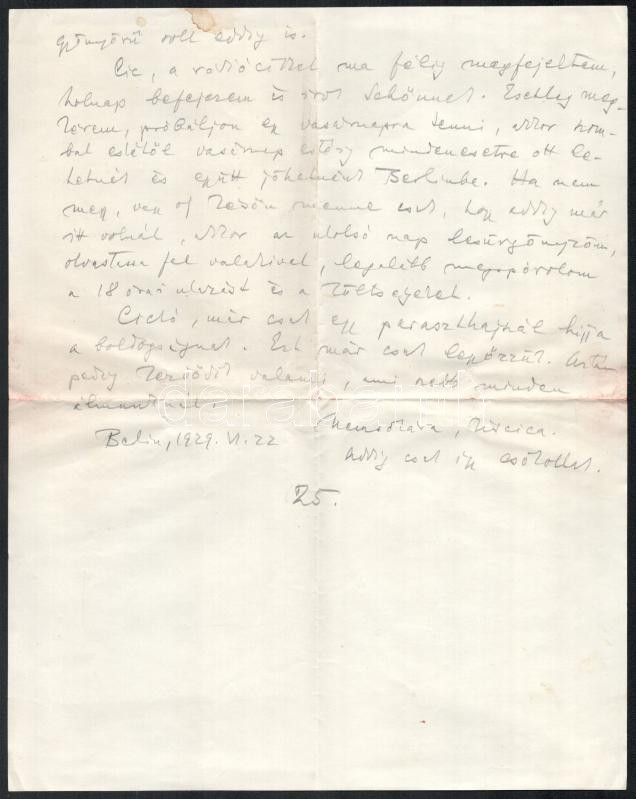 gyönyörű volt eddig is.
Cic, a rádiócikket ma félig megfejeltem,
holnap befejezem és írok Schönnek. Esetleg meg-
kérem, próbáljon egy vasárnapra tenni, akkor szom-
bat estétől vasárnap estéig mindenesetre ott le-
hetnék és együtt jöhetnénk Berlinbe. Ha nem
megy, vagy úgy menne csak, hogy eddig már
itt volnál, akkor az utolsó nap lesürgönyzöm,
olvastassa fel valakivel, legalább megspórolom
a 18 órai utazást és a költségeket.
Cickó, már csak egy paraszthajnal híjja
a boldogságnak. Ezt már csak legyőzzük. Aztán
pedig kezdődik valami, ami szebb minden
álmunknál.
Nemsokára, Kiscica.
Berlin, 1929. VI. 22
Addig csak így csókollak.
25.
darabanth